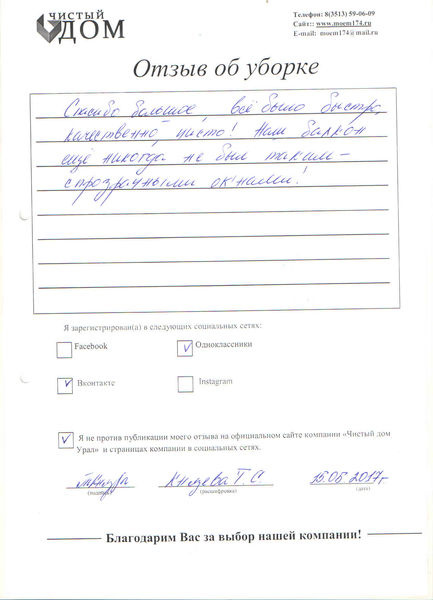 чистый
ДОМ
Телефон: 8(3513) 59-06-09
Сайт:: www.moem174.ru
E-mail: moem174@mail.ru
Отзыв об уборке
Спасибо большое, всё было быстро,
качественно, чисто! Наш балкон
ещё никогда не был таким –
с прозрачными окнами!
Я зарегистрирован(а) в следующих социальных сетях:
Facebook
Одноклассники
Вконтакте
Instagram
Я не против публикации моего отзыва на официальном сайте компании «Чистый дом
Урал» и страницах компании в социальных сетях.
Князева Т. С.
15.05.2017г
(подпись)
(расшифровка)
(дата)
Благодарим Вас за выбор нашей компании!